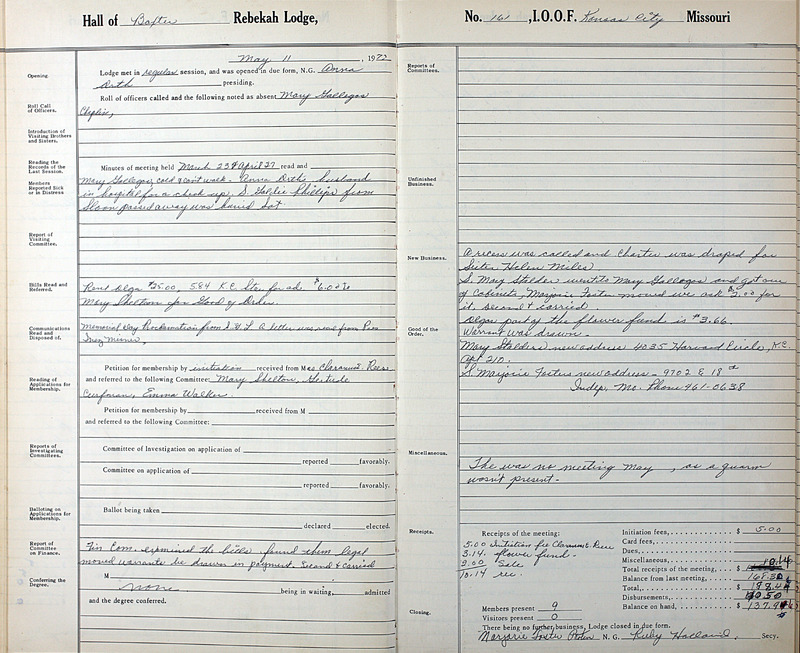 Hall of Baxter Rebekah Lodge,
May 11, 1972
Opening
Lodge met in regular session, and was opened in due form, N.G. Anna
Orth presiding.
Roll Call of Officers.
Roll of officers called and the following noted as absent Mary Gallegos
Chaplin,
Introduction of Visiting Brothers and Sisters.
Reading the Records of the Last Session.
Minutes of meeting held March 23 & April 27 read and
Members Reported Sick or in Distress
Mary Gallegos, cold & cant walk. Anna Orths husband
in hospital for a check up. S. Phillips from
Sloan passed away was buried Sat.
Report of Visiting Committee.
Bills Read and Referred.
Rent Olga $25.00, 584 K.C. Star for ad. $6.00
Mary Shelton for Good of Order.
Communications Read and Disposed of.
Memorial Day Proclamation from A letter was read from Pres
Inez
Petition for membership by initiation received from M rs Claramut. Reese
Reading of Applications for Membership.
and referred to the following Committee: Mary Shelton, Gertrude
Emma Walker.
Petition for membership by received from M
and referred to the following Committee:
Reports of Investigating Committees.
Committee of Investigation on application of
reported favorably.
Committee on application of
reported favorably.
Balloting on Applications for Membership.
Ballot being taken
declared elected.
Report of Committee on Finance.
Fin Com. examined the bills, found them legal
moved warrants be drawn in payment. Second & Carried
Conferring the Degree.
M
none. being in waiting, admitted
and the degree conferred.
No. 161, I.O.O.F. Kansas City Missouri
Reports of Committees.
Unfinished Business.
New Business.
A recess was called and Charter was draped for
Sister Helen
S. Mary Stalder went to Mary Gallegos and got one
of Cabinets, Marjorie Foster moved we ask $2.00 for
it. Second & carried.
Good of the Order.
Olgas part of the flower fund is $3.66
Warrant was drawn.
Mary Stalders new address 4035 Harvard Circle, K.C.
Apt 210.
S Marjorie Fosters new address - 9702 E 18th
Indep, Mo. Phone 461-0638
Miscellaneous.
The was no meeting May , as a quarm
wosn't present.
Receipts.
Receipts of the meeting:
5.00 Initiation fee Claramut. Reese
3.14. flower fund.
2.00 Sale
10.14 rec.
Initiation fees, $ 5.00
Card fees,
Dues,
Miscellaneous, 10.14
Total receipts of the meeting, $
Balance from last meeting,
Total, $
Disbursements,
Balance on hand, $
Members present 9
Visitors present 0
Closing.
There being no further business, Lodge closed in due form.
Marjorie Foster N. G. Ruby Holland. Secy.